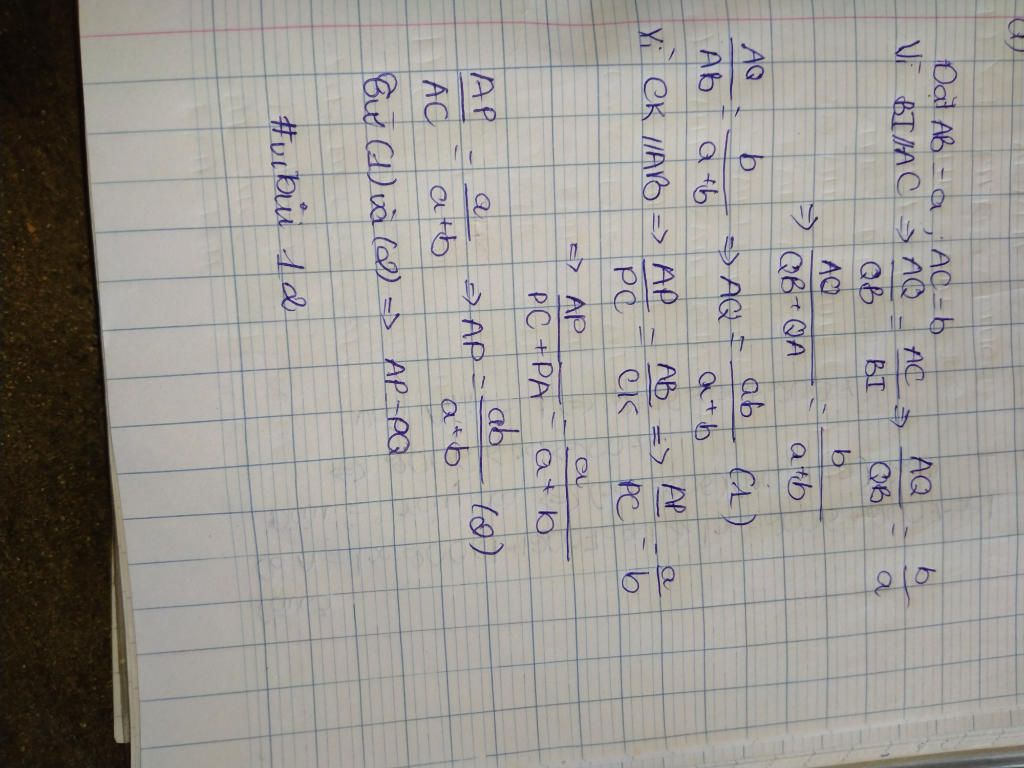 a)
Đặt AB = a ; AC = b
Vì BI // AC ⇒ AQ/QB = AC/BI ⇒ AQ/QB = b/a
⇒ AQ/(QB + QA) = b/(a+b)
AQ/AB = b/(a+b) ⇒ AQ = ab/(a+b) (1)
Vì CK // AB ⇒ AP/PC = AB/CK ⇒ AP/PC = a/b
⇒ AP/(PC + PA) = a/(a+b)
AP/AC = a/(a+b) ⇒ AP = ab/(a+b) (2)
Từ (1) và (2) ⇒ AP = PQ